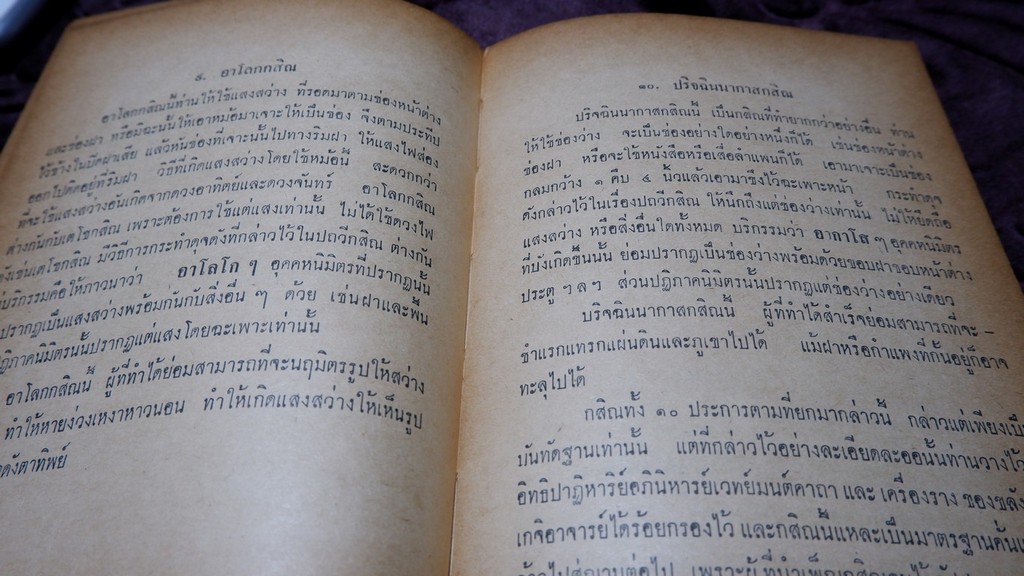 ๙. อาโลกกสิณ
อาโลกกสิณนี้ท่านให้ใช้แสงสว่าง ที่รอดมาตามช่องหน้าต่าง
และช่องฝา หรือมิฉะนั้นให้เอาหม้อมาเจาะให้เป็นช่อง จึงตามประทีป
ไว้ข้างในปิดฝาเสีย แล้วหันช่องที่เจาะนั้นไปทางริมฝา ให้แสงไฟส่อง
ออกไปติดอยู่ที่ริมฝา วิธีที่เกิดแสงสว่างโดยใช้หม้อนี้ สะดวกกว่า
ที่จะใช้แสงสว่างอันเกิดจากดวงอาทิตย์และดวงจันทร์ อาโลกกสิณ
ต่างกันกับเตโชกสิณ เพราะต้องการใช้แต่แสงเท่านั้น ไม่ได้ใช้ดวงไฟ
เช่นเตโชกสิณ มีวิธีการกระทำดุจดังที่กล่าวไว้ในปถวีกสิณ ต่างกัน
บริกรรมคือให้ภาวนาว่า อาโลโก ๆ อุคคหนิมิตรที่ปรากฏนั้น
ปรากฏเป็นแสงสว่างพร้อมกันกับสิ่งอื่น ๆ ด้วย เช่นฝาและพื้น
ปฏิภาคนิมิตรนั้นปรากฏแต่แสงโดยฉะเพาะเท่านั้น
อาโลกกสิณนี้ ผู้ที่ทำได้ย่อมสามารถที่จะนฤมิตรรูปให้สว่าง
ทำให้หายง่วงเหงาหาวนอน ทำให้เกิดแสงสว่างให้เห็นรูป
ดังตาทิพย์
๑๐. ปริจฉินนากาสกสิณ
ปริจฉินนากาสกสิณนี้ เป็นกสิณที่ทำยากกว่าอย่างอื่น ท่าน
ให้ใช้ช่องว่าง จะเป็นช่องอย่างใดอย่างหนึ่งก็ได้ เช่นช่องหน้าต่าง
ช่องฝา หรือจะใช้หนังสือหรือเสื่อลำแพนก็ได้ เอามาเจาะเป็นช่อง
กลมกว้าง ๑ คืบ ๔ นิ้วแล้วเอามาขึงไว้ฉะเพาะหน้า กระทำดุจ
ดังกล่าวไว้ในเรื่องปถวีกสิณ ให้นึกถึงแต่ช่องว่างเท่านั้น ไม่ให้ยึดถือ
แสงสว่าง หรือสิ่งอื่นใดทั้งหมด บริกรรมว่า อากาโส ๆ อุคคหนิมิตร
ที่บังเกิดขึ้นนั้น ย่อมปรากฏเป็นช่องว่างพร้อมด้วยขอบฝาขอบหน้าต่าง
ประตู ฯลฯ ส่วนปฏิภาคนิมิตรนั้นปรากฏแต่ช่องว่างอย่างเดียว
ปริจฉินนากาสกสิณนี้ ผู้ที่ทำได้สำเร็จย่อมสามารถที่จะ –
ชำแรกแทรกแผ่นดินและภูเขาไปได้ แม้ฝาหรือกำแพงที่กั้นอยู่ก็อาจ
ทะลุไปได้
กสิณทั้ง ๑๐ ประการตามที่ยกมากล่าวนี้ กล่าวแต่เพียงเป็
บันทัดฐานเท่านั้น แต่ที่กล่าวไว้อย่างละเอียดละออนั้นท่านวางไว้
อิทธิปาฏิหาริย์อภินิหารย์เวทย์มนต์คาถา และ เครื่องราง ของขลัง
เกจิอาจารย์ได้ร้อยกรองไว้ และกสิณนี้แหละเป็นมาตรฐานค้น
เพราะผู้ ที่บำเพ็ญกสิณ